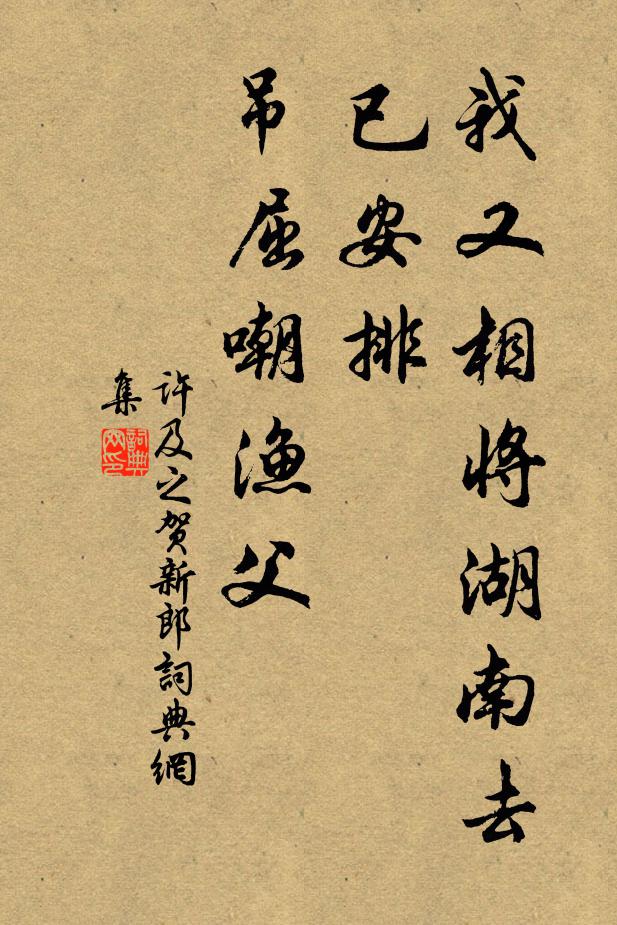 我又相将湖南去
已安排
吊屈嘲渔父
许及之贺新郎詞典網
集
詞典
网印